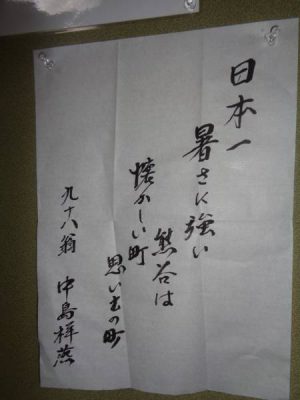 日本一
暑さに強い
熊谷は
懐かしい町
思い出の町
九十八翁 中島祥燕